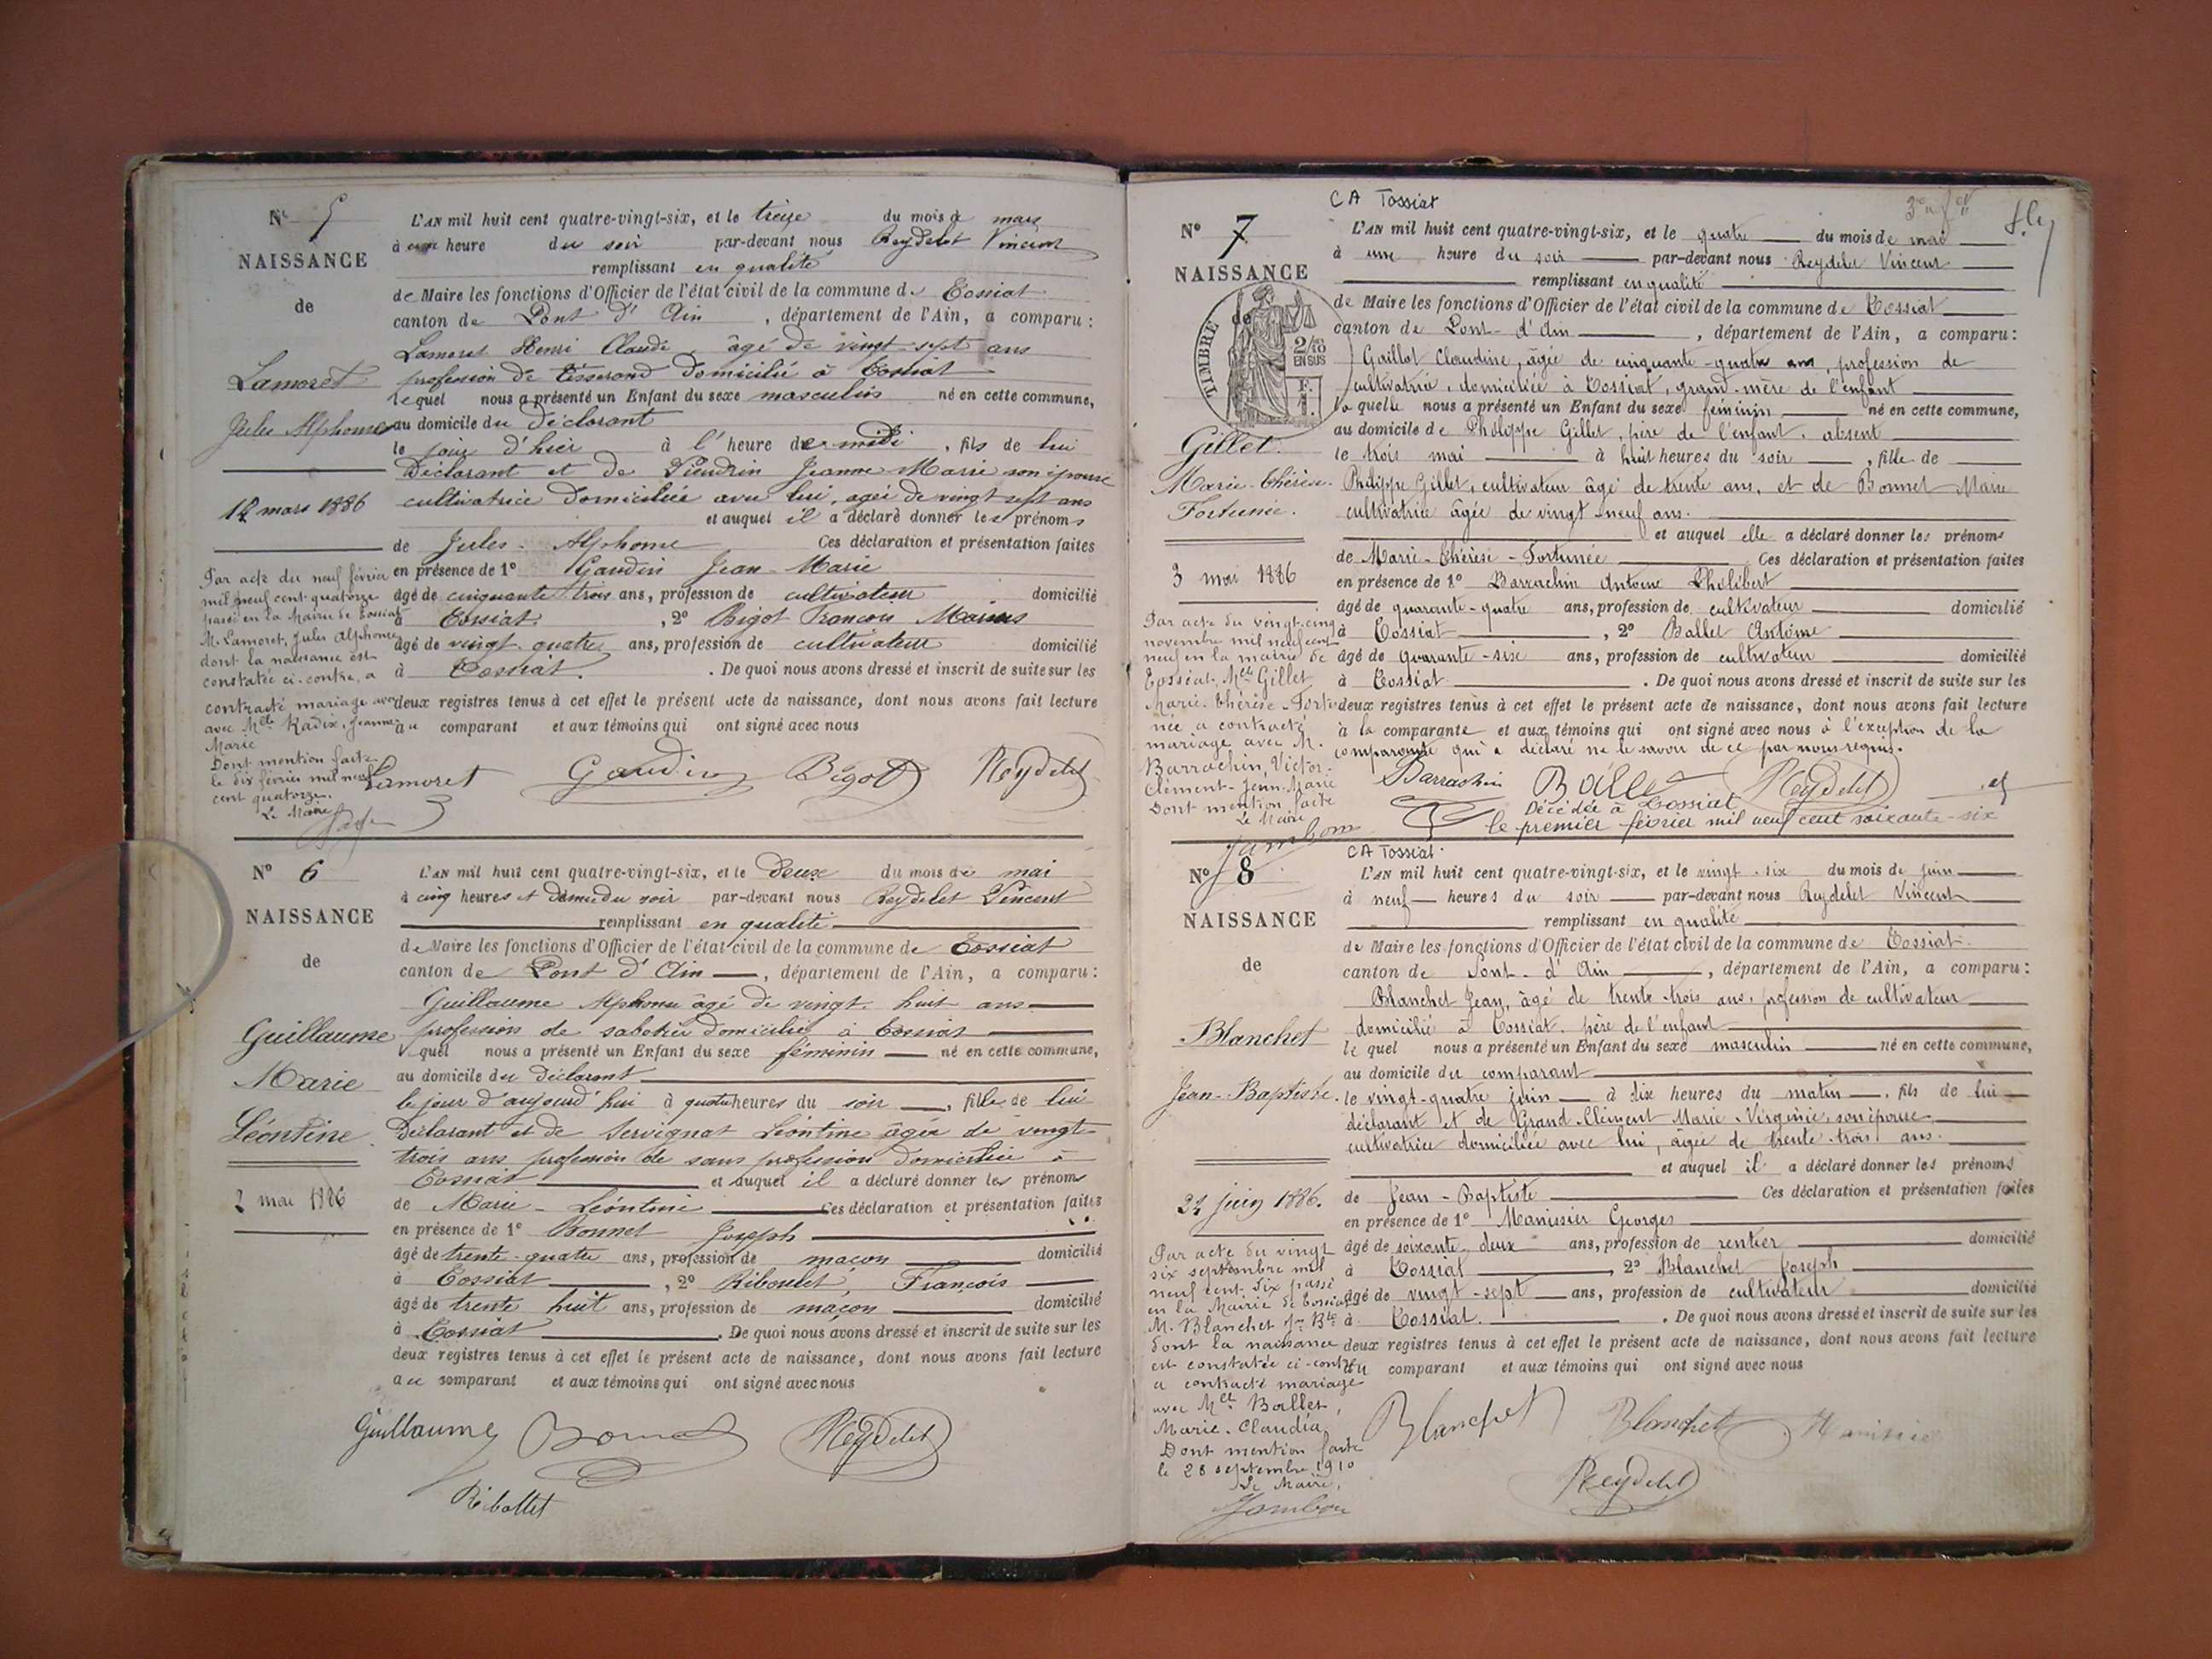 N° 5
NAISSANCE
de
Lamoret
Jules Alphonse
12 mars 1886
Par acte du neuf février
mil neuf cent quatorze
passé en la Mairie de Tossiat
M. Lamoret, Jules Alphonse
dont la naissance est
constatée ci-contre, a
contracté mariage avec
avec Mlle Radix, Jeanne
Marie
Dont mention faite
le dix février mil neuf
cent quatorze.
Le Maire
L'AN mil huit cent quatre-vingt-six, et le treize du mois de mars
à une heure du soir par-devant nous Reydelet Vincent
remplissant en qualité
de Maire les fonctions d'Officier de l'état civil de la commune de Tossiat
canton de Pont d'Ain, département de l'Ain, a comparu :
Lamoret Henri Claude, âgé de vingt-sept ans
profession de tisserand domicilié à Tossiat
lequel nous a présenté un Enfant du sexe masculin né en cette commune,
au domicile du déclarant
le jour d'hier à l'heure de midi, fils de lui
Déclarant et de Jeanne Marie son épouse
cultivatrice domiciliée avec lui, agée de vingt sept ans
et auquel il a déclaré donner les prénoms
de Jules-Alphonse Ces déclaration et présentation faites
en présence de 1° Gaudin Jean-Marie
âgé de cinquante trois ans, profession de cultivateur domicilié
à Tossiat, 2° Bigot François Marius
âgé de vingt-quatre ans, profession de cultivateur domicilié
à Tossiat. De quoi nous avons dressé et inscrit de suite sur les
deux registres tenus à cet effet le présent acte de naissance, dont nous avons fait lecture
au comparant et aux témoins qui ont signé avec nous
Lamoret Gaudin Bigot Reydelet
N° 6
NAISSANCE
de
Guillaume
Marie
Léontine
2 mai 1886
L'AN mil huit cent quatre-vingt-six, et le deux du mois de mai
à cinq heures et demie du soir par-devant nous Reydelet Vincent
remplissant en qualité
de Maire les fonctions d'Officier de l'état civil de la commune de Tossiat
canton de Pont d'Ain, département de l'Ain, a comparu :
Guillaume Alphonse âgé de vingt-huit ans
profession de sabotier domicilié à Tossiat
lequel nous a présenté un Enfant du sexe féminin né en cette commune,
au domicile du déclarant
le jour d'aujourd'hui à quatre heures du soir, fille de lui
Déclarant et de Servignat Léontine âgée de vingt
trois ans profession de sans profession domiciliée à
Tossiat et auquel il a déclaré donner les prénoms
de Marie-Léontine Ces déclaration et présentation faites
en présence de 1° Bonnet Joseph
âgé de trente-quatre ans, profession de maçon domicilié
à Tossiat, 2° Riboulet, François
âgé de trente huit ans, profession de maçon domicilié
à Tossiat. De quoi nous avons dressé et inscrit de suite sur les
deux registres tenus à cet effet le présent acte de naissance, dont nous avons fait lecture
au comparant et aux témoins qui ont signé avec nous
Guillaume Bonnet Reydelet
Ribollet
CA Tossiat
N° 7
NAISSANCE
de
TIMBRE
2/10
EN SUS
Gillet
Marie-Thérèse-
Fortunée.
3 mai 1886
Par acte du vingt-cinq
novembre mil neuf cent
neuf en la mairie de
Tossiat, Mlle Gillet
Marie-Thérèse-Fortu-
née a contracté
mariage avec M.
Barrachin, Victor-
Clément-Jean-Marie
Dont mention faite
Le Maire
Jambon
L'AN mil huit cent quatre-vingt-six, et le quatre du mois de mai
à une heure du soir par-devant nous Reydelet Vincent
remplissant en qualité
de Maire les fonctions d'Officier de l'état civil de la commune de Tossiat
canton de Pont-d'Ain, département de l'Ain, a comparu :
Gaillot Claudine, âgée de cinquante-quatre ans, profession de
cultivatrice, domiciliée à Tossiat, grand-mère de l'enfant
laquelle nous a présenté un Enfant du sexe féminin né en cette commune,
au domicile de Philippe Gillet, père de l'enfant, absent
le trois mai à huit heures du soir, fille de
Philippe Gillet, cultivateur âgé de trente ans, et de Bonnet Marie
cultivatrice âgée de vingt-neuf ans.
et auquel elle a déclaré donner les prénoms
de Marie-Thérèse-Fortunée Ces déclaration et présentation faites
en présence de 1° Barrachin Antoine Philibert
âgé de quarante-quatre ans, profession de cultivateur domicilié
à Tossiat, 2° Ballet Antoine
âgé de quarante-six ans, profession de cultivateur domicilié
à Tossiat. De quoi nous avons dressé et inscrit de suite sur les
deux registres tenus à cet effet le présent acte de naissance, dont nous avons fait lecture
à la comparante et aux témoins qui ont signé avec nous à l'exception de la
comparante qui a déclaré ne le savoir de ce par nous requis.
Barrachin Ballet Reydelet
Décédée à Tossiat
le premier février mil neuf cent soixante-six
CA Tossiat
N° 8
NAISSANCE
de
Blanchet
Jean-Baptiste.
24 juin 1886.
Par acte du vingt
six septembre mil
neuf cent dix passé
en la Mairie de Tossiat
M. Blanchet Jn Bte
dont la naissance
est constatée ci-contre
a contracté mariage
avec Mlle Ballet,
Marie-Claudia
Dont mention faite
le 28 septembre 1910
Le Maire,
Jambon
L'AN mil huit cent quatre-vingt-six, et le vingt-six du mois de juin
à neuf heures du soir par-devant nous Reydelet Vincent
remplissant en qualité
de Maire les fonctions d'Officier de l'état civil de la commune de Tossiat
canton de Pont-d'Ain, département de l'Ain, a comparu :
Blanchet Jean, âgé de trente-trois ans, profession de cultivateur
domicilié à Tossiat, père de l'enfant
lequel nous a présenté un Enfant du sexe masculin né en cette commune,
au domicile du comparant
le vingt-quatre juin à dix heures du matin, fils de lui
déclarant et de Grand-Clément Marie-Virginie, son épouse
cultivatrice domiciliée avec lui, âgée de trente-trois ans.
et auquel il a déclaré donner les prénoms
de Jean-Baptiste Ces déclaration et présentation faites
en présence de 1° Manissier Georges
âgé de soixante-deux ans, profession de rentier domicilié
à Tossiat, 2° Blanchet Joseph
âgé de vingt-sept ans, profession de cultivateur domicilié
à Tossiat. De quoi nous avons dressé et inscrit de suite sur les
deux registres tenus à cet effet le présent acte de naissance, dont nous avons fait lecture
au comparant et aux témoins qui ont signé avec nous
Blanchet Blanchet Manissier
Reydelet